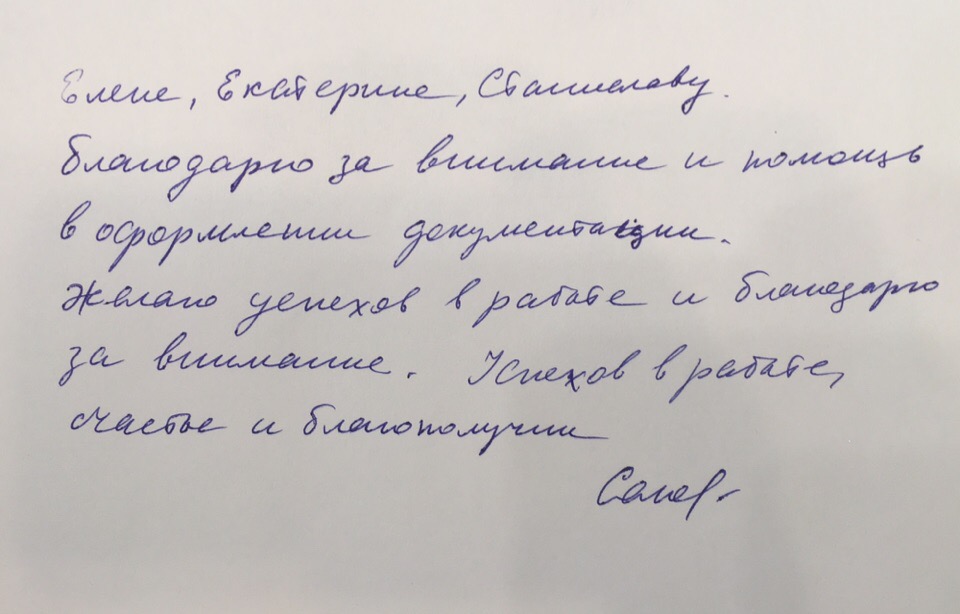 Елене, Екатерине, Станиславу.
Благодарю за внимание и помощь
в оформлении документации.
Желаю успехов в работе и благодарю
за внимание. Успехов в работе,
счастье и благополучии